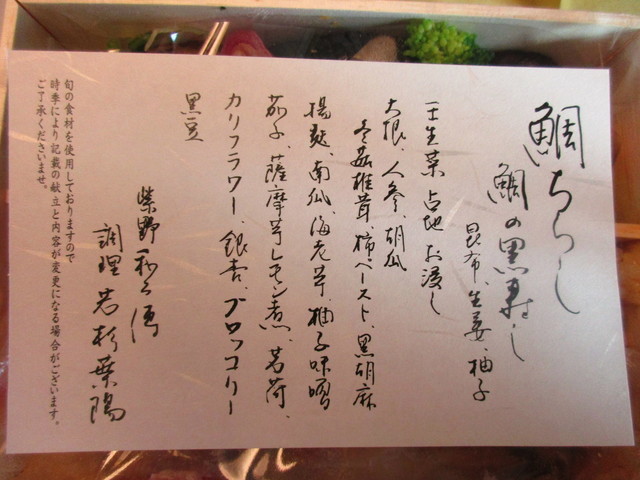 鯛ちらし
鯛の黒寿し
昆布、生姜、柚子
壬生菜 占地 お浸し
大根、人参、胡瓜
冬菇椎茸、柿ペースト、黒胡麻
揚麩、南瓜、海老芋、柚子味噌
茄子、薩摩芋レモン煮、茗荷、
カリフラワー、銀杏、ブロッコリー
黒豆
紫野和久傳
調理 若杉葉陽
旬の食材を使用しておりますので
時季により記載の献立と内容が変更になる場合がございます。
ご了承くださいませ。